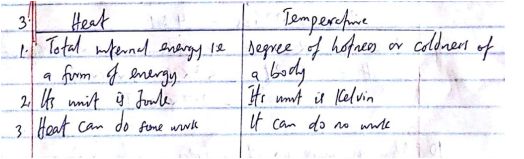 3. Heat Temperature
1. Total internal energy ie Degree of hotness or coldness of
a form of energy a body
2. Its unit is Joule Its unit is Kelvin
3 Heat can do some work It can do no work